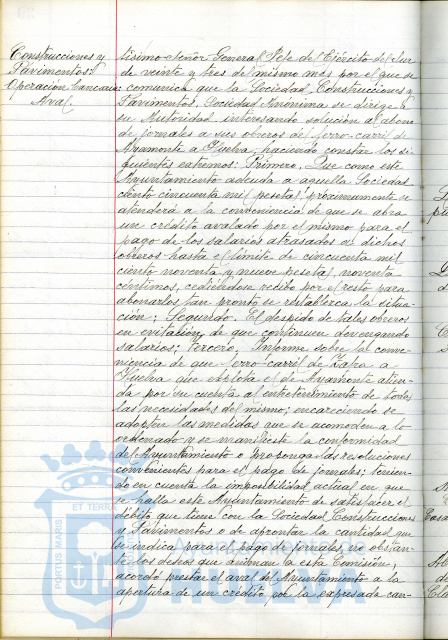 Construcciones y
Pavimentos:
Operación bancaria
Aval.
tísimo señor General Jefe del Ejército del Sur
de veinte y tres del mismo mes por el que se
comunica que la Sociedad, Construcciones y
Pavimentos, Sociedad Anónima se dirige a
su Autoridad interesando solución al abono
de jornales a sus obreros del ferro-carril de
Ayamonte a Huelva, haciendo constar los si-
guientes extremos: Primero, Que como este
Ayuntamiento adeuda a aquella Sociedad
ciento cincuenta mil pesetas próximamente se
atenderá a la conveniencia de que se abra
un crédito avalado por el mismo para el
pago de los salarios atrasados a dichos
obreros hasta el límite de cincuenta mil
ciento noventa y nueve pesetas noventa
céntimos, cediéndose recibo por el resto para
abonarlos tan pronto se restablezca la situa-
ción; Segundo. El despido de tales obreros
en evitación de que continuen devengando
salarios; Tercero, Informe sobre la conve-
niencia de que ferro-carril de Zafra a
Huelva que explota el de Ayamonte atien-
da por su cuenta al entretenimiento de todas
las necesidades del mismo; encareciendo se
adopten las medidas que se acomoden a lo
ordenado y se manifieste la conformidad
del Ayuntamiento o proponga las resoluciones
convenientes para el pago de jornales; tenien-
do en cuenta la imposibilidad actual en que
se halla este Ayuntamiento de satisfacer el
débito que tiene con la Sociedad Construcciones
y Pavimentos o de aprontar la cantidad que
se indica para el pago de jornales no obstan-
te los deseos que animan a esta Comisión,
acordó prestar el aval del Ayuntamiento a la
apertura de un crédito por la expresada can-
PORTUS MARIS
ET TERRAE
HUELVA